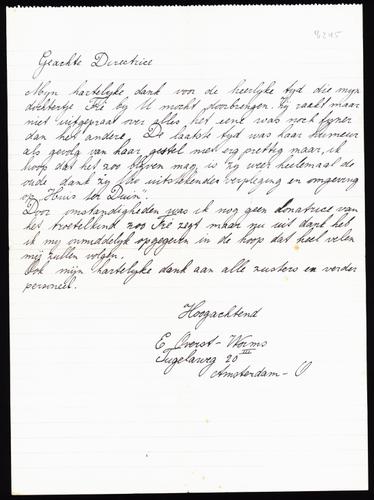 9245
Geachte Directrice
Mijn hartelijke dank voor de heerlijke tijd die mijn
dochtertje Fré bij U mocht doorbrengen. Zij raakt maar
niet uitgepraat over alles het eene was noch fijner
dan het andere. De laatste tijd was haar humeur
als gevolg van haar gestel niet erg prettig maar, ik
hoop dat het zoo blijven mag, is zij weer heelemaal de
oude dank zij de uitstekende verpleging en omgeving
op Huis ter Duin.
Door omstandigheden was ik nog geen donatrice van
het troetelkind zoo Fré zegt maar nu uit dank heb
ik my onmiddelijk opgegeven in de hoop dat heel velen
mij zullen volgen.
Ook mijn hartelijke dank aan alle zusters en verder
personeel.
Hoogachtend
E. Overst - Worms
Tugelaweg 20 III
Amsterdam - O